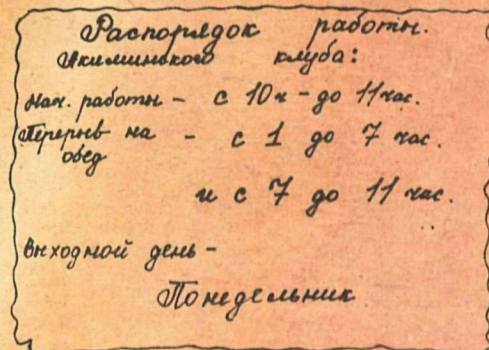 Распорядок работы.
Икшминского клуба:
Нач. работы - с 10ч - до 11 час.
Перерыв на - с 1 до 7 час.
обед
и с 7 до 11 час.
Выходной день -
Понедельник